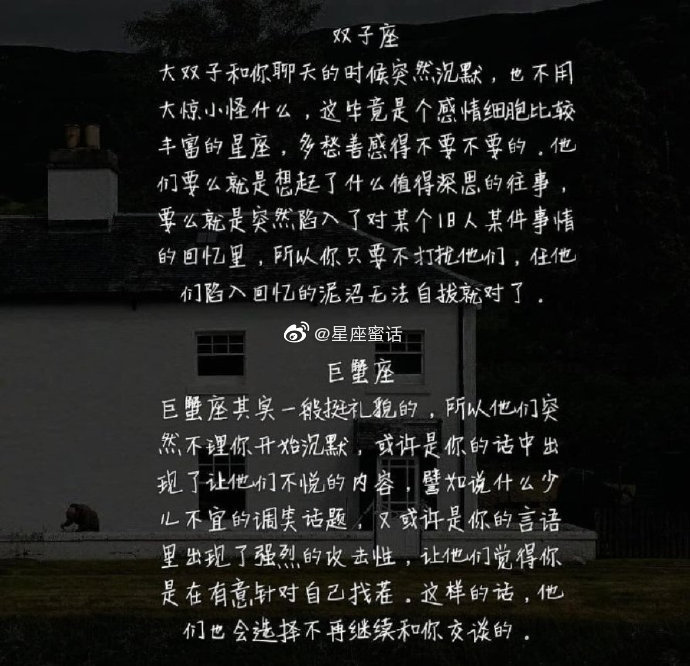 双子座
大双子和你聊天的时候突然沉默，也不用
大惊小怪什么，这毕竟是个感情细胞比较
丰富的星座，多愁善感得不要不要的．他
们要么就是想起了什么值得深思的往事，
要么就是突然陷入了对某个旧人某件事情
的回忆里，所以你只要不打扰他们，任他
们陷入回忆的泥沼无法自拔就对了．
@星座蜜话
巨蟹座
巨蟹座其实一般挺礼貌的，所以他们突
然不理你开始沉默，或许是你的话中出
现了让他们不悦的内容，譬如说什么少
儿不宜的调类话题，又或许是你的言语
里出现了强烈的攻击性，让他们觉得你
是在有意针对自己找茬．这样的话，他
们也会选择不再继续和你交谈的．